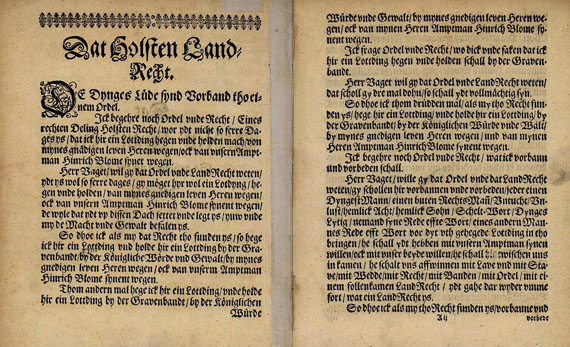 Dat Holsten Land-
Recht.
DE Dynges Lüde synd Vorband tho ei-
nem Ordel.
Ick begehre noch Ordel vnde Recht / Eines
rechten Deling Holsten Recht / wor ydt nicht so ferre Da-
ges ys / dat ick hir ein Lotding hegen vnde holden mach / von
mynes gnädigen leven Heren wegen / ock van vnsern Ampt-
man Hinrich Blome synet wegen.
Herr Vaget / wil gy dat Ordel vnde LandRecht weten /
ydt ys wol so ferre dages / gy möget hyr wol ein Lotdyng / he-
gen vnde holden / van mynes gnedigen leven Heren wegen /
ock van vnsern Amptman Hinrich Blome synent wegen /
de wyle dat ydt vp dissen Dach settet vnde legt ys / yuw vnde
my de Macht vnde Gewalt befalen ys.
So dhoe ick als my dat Recht tho funden ys / so hege
ick hir ein Lotding vnd holde hir ein Lotding by der Gra-
venbandt / by der Königliche Wörde vnd Gewalt / by mynes
gnedigen leven Heren wegen / ock van vnsern Amptman
Hinrich Blome synent wegen.
Thom andern mal hege ick hir ein Lotding / vnde holde
hir ein Lotding by der Gravenbandt / by der Königlichen
Würde
Würde vnde Gewalt / by mynes gnedigen leven Heren we-
gen / ock van mynen Heren Amptman Hinrich Blome sy-
nent wegen.
Ick frage Ordel vnde Recht / wo dick vnde faken dat ick
hir ein Lotding hegen vnde holden schall by der Graven-
bandt.
Herr Vaget wil gy dat Ordel vnde LandRecht weten /
dat scholl gy dre mal dohn / so schall ydt vollmächtig syn.
So dhoe ick thom drüdden mal / als my tho Recht fun-
den ys / hege hir ein Lotding vnde holde hir ein Lotding / by
der Gravenbandt / by der Königlichen Würde vnde Walt /
by mynes gnedigen leven Heren wegen / vnd van mynen
Heren Amptman Hinrich Blome synent wegen.
Ick begehre noch Ordel vnd Recht / wat ick vorbann
vnd vorbeden schall.
Herr Vaget / wille gy dat Ordel vnde dat LandRecht
weten / gy schollen hir vorbannen vnde vorbeden / jeder einen
DyngestMann / einen buten RechtsMañ / Vntucht / Vn-
lust / hemlick Acht / hemlick Sohn / Schelt-Wort / Dynges
Lytig / niemand syne Rede effte Wort / eines andern Man-
nes Rede efft Wort vor dyt vth gehegede Lotding in tho
bringen / he schall ydt hebben mit vnsern Amptman synen
willen / ock mit vnser beyde willen / he schall zwischen uns
in kamen / he schalt vns affwinnen mit Lave vnd mit Sta-
ve / mit Wedde / mit Recht / mit Bandten / mit Ordel / mit ei-
nem follenkamen LandRecht / ydt gahe dar wyder vmme
fort / wat ein LandRecht ys.
So dhoe ick als my tho Recht funden ys / vorbanne vnd
Aij
vorbede